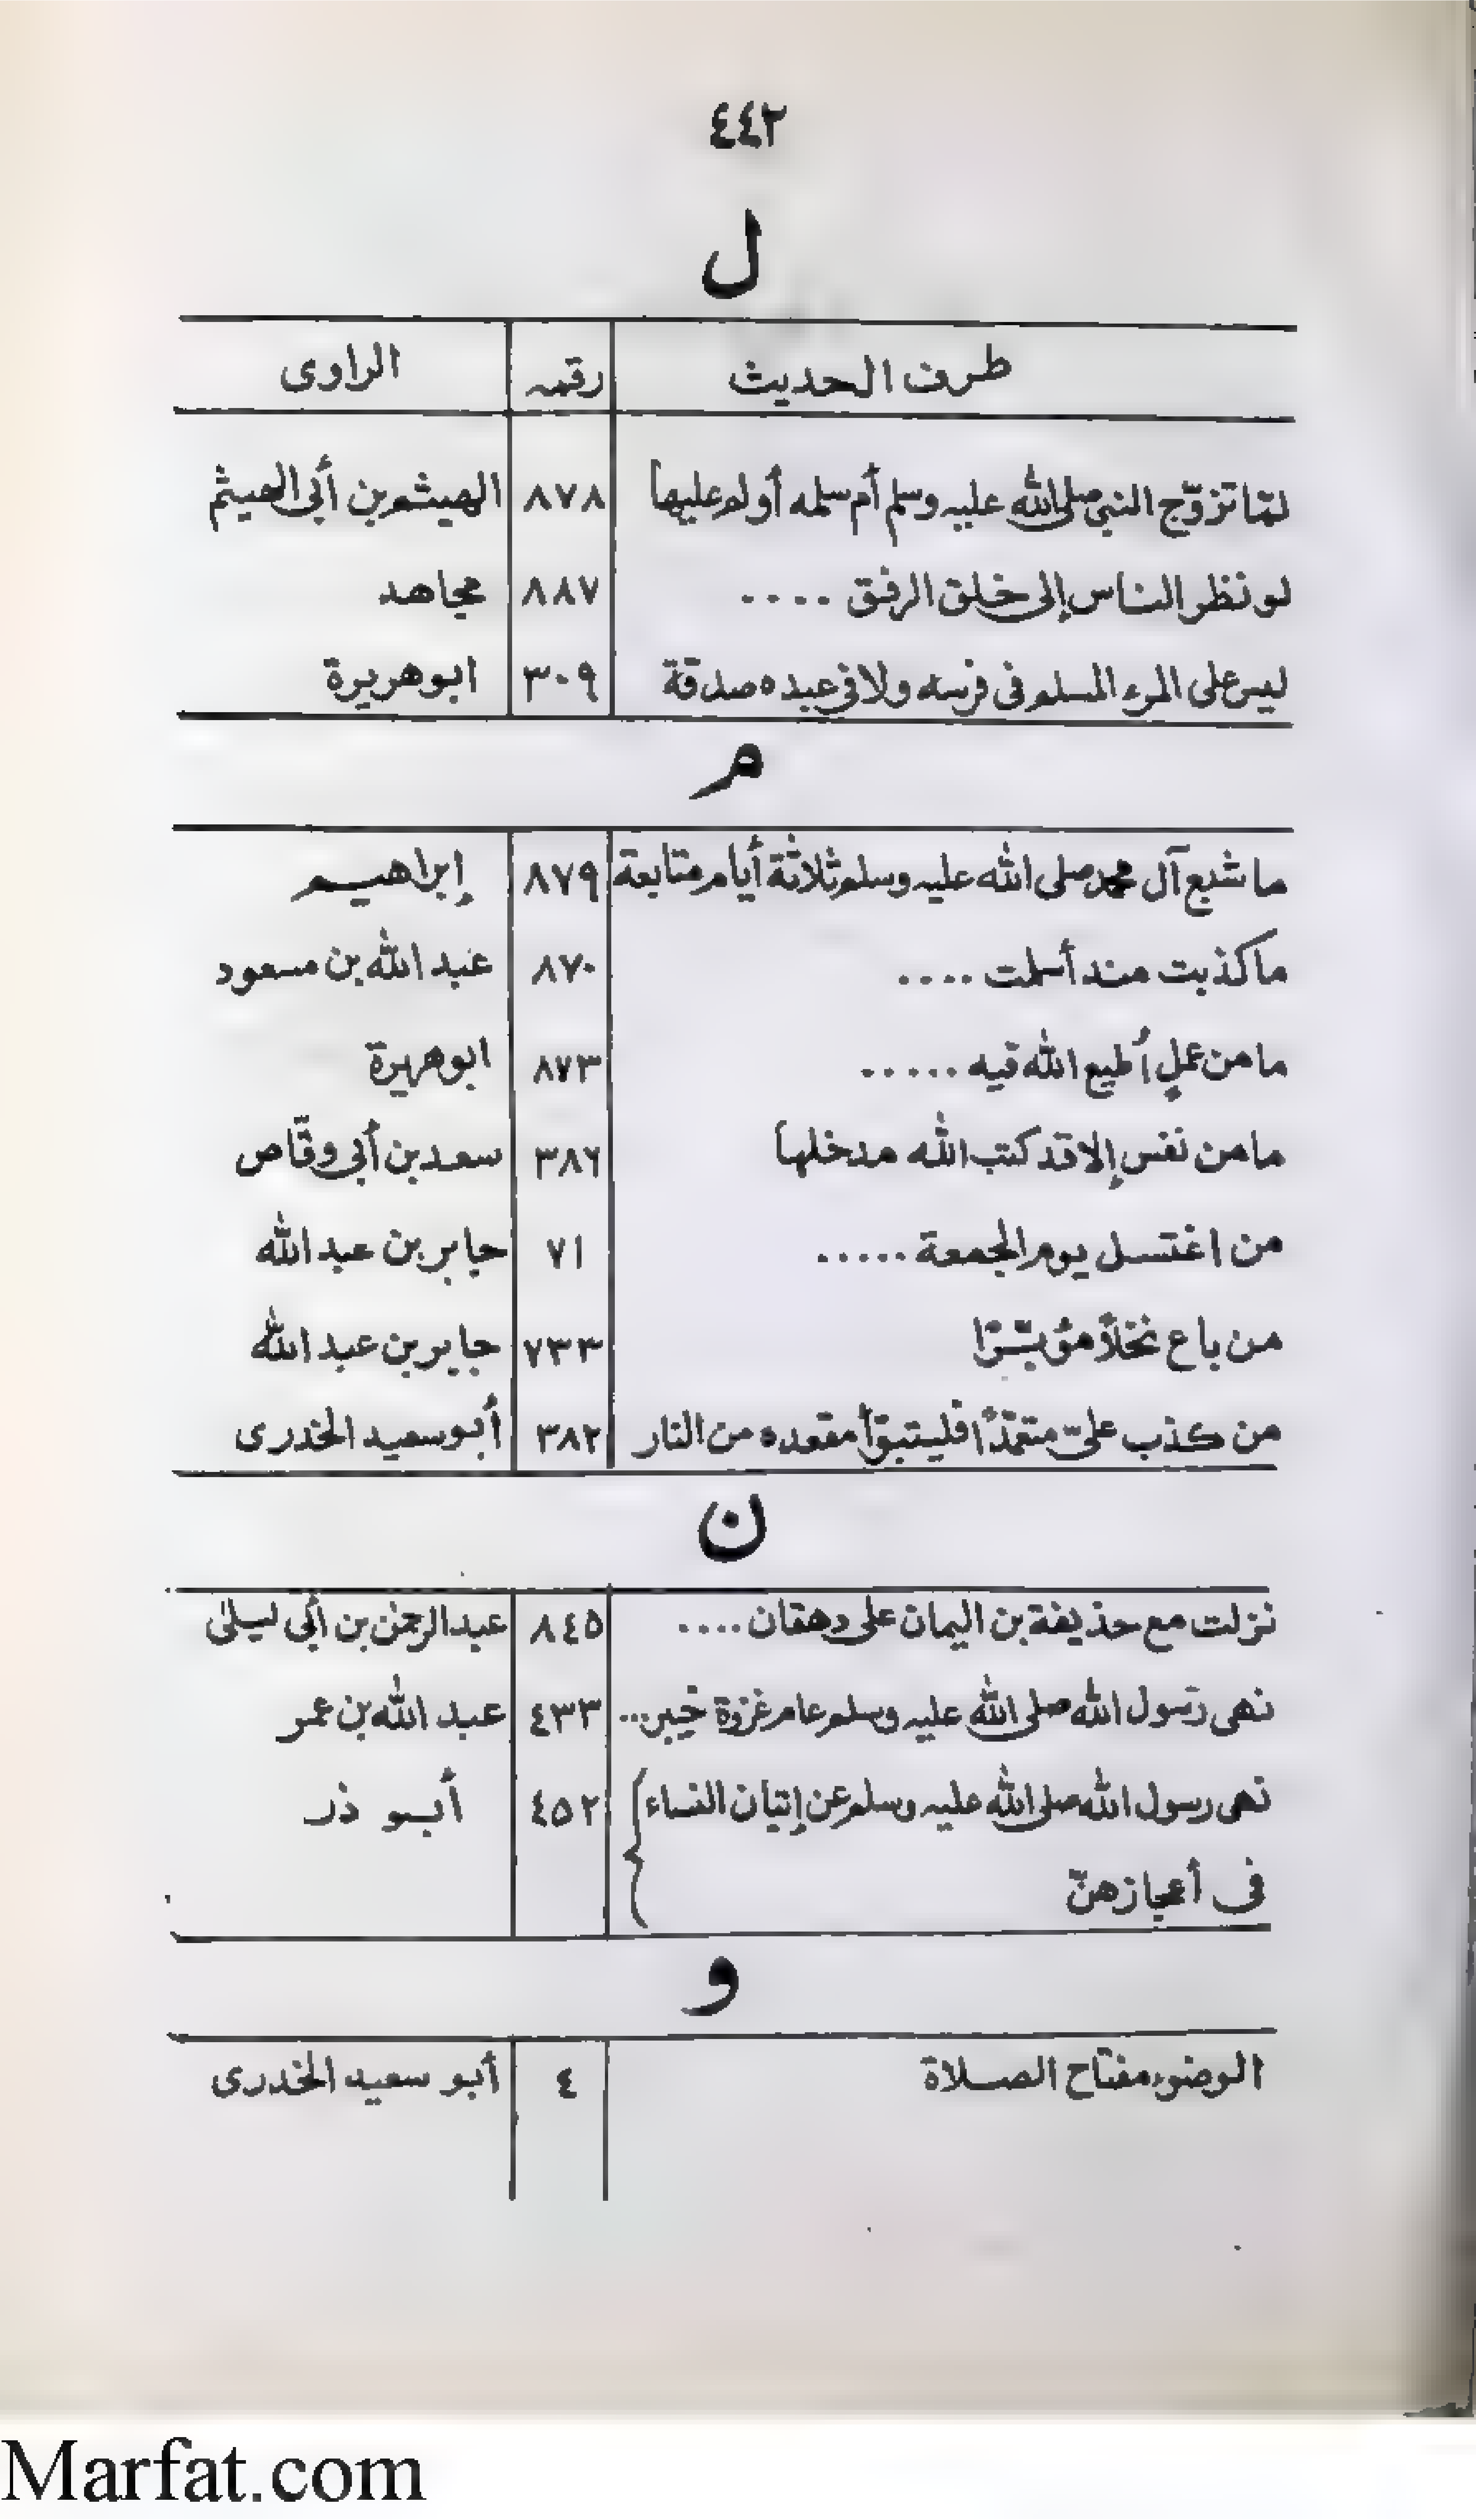 ٤٤٢
ل
طرف الحديث رقمه الراوى
لمّا تزوّج النبي صلى الله عليه وسلم أم سلمه أولم عليها ٨٧٨ الهيثم بن أبي الهيثم
لو نظر الناس إلى خلق الرفق .... ٨٨٧ مجاهد
ليس على المرء المسلم فى فرسه ولا فى عبده صدقة ٣٠٩ ابو هريرة
م
ما شبع آل محمد صلى الله عليه وسلم ثلاثة أيام متابعة ٨٧٩ إبراهيم
ما كذبت منذ أسلمت .... ٨٧٠ عبد الله بن مسعود
ما من عملٍ أطيع الله فيه ..... ٨٧٣ ابو هريرة
ما من نفس إلا قد كتب الله مدخلها ٣٨٦ سعد بن أبي وقّاص
من اغتسل يوم الجمعة ..... ٧١ جابر بن عبد الله
من باع نخلاً مؤبّرًا ٧٣٣ جابر بن عبد الله
من كذب علىّ متعمّدًا فليتبوّأ مقعده من النار ٣٨٢ أبو سعيد الخدرى
ن
نزلت مع حذيفة بن اليمان على دهقان .... ٨٤٥ عبد الرحمٰن بن أبي ليلىٰ
نهى رسول الله صلى الله عليه وسلم عام غزوة خيبر... ٤٣٣ عبد الله بن عمر
نهى رسول الله صلى الله عليه وسلم عن إتيان النساء ٤٥٢ أبو ذر
فى أعجازهنّ
و
الوضوء مفتاح الصلاة ٤ أبو سعيد الخدرى
Marfat.com